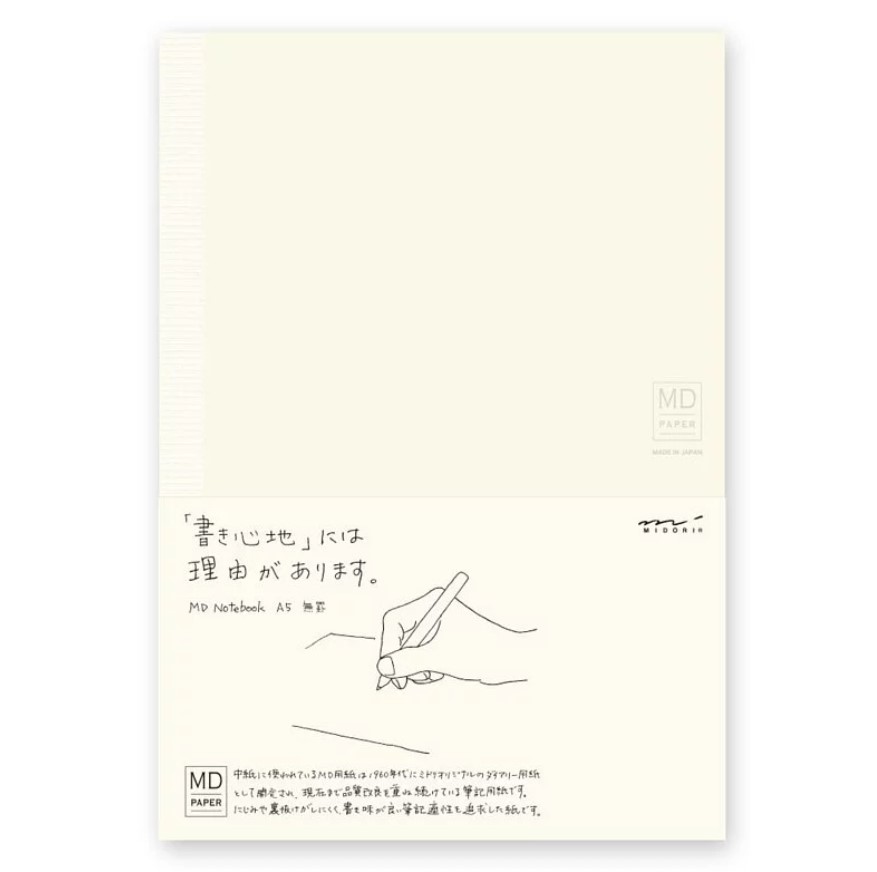 MD
PAPER
MADE IN JAPAN
「書き心地」には
理由があります。
MIDORI
MD Notebook A5 無罫
MD
PAPER
中紙に使われているMD用紙は1960年代にミドリオリジナルのダイアリー用紙
として開発され、現在まで品質改良を重ね続けている筆記用紙です。
にじみや裏抜けがしにくく、書き味が良い筆記適性を追求した紙です。